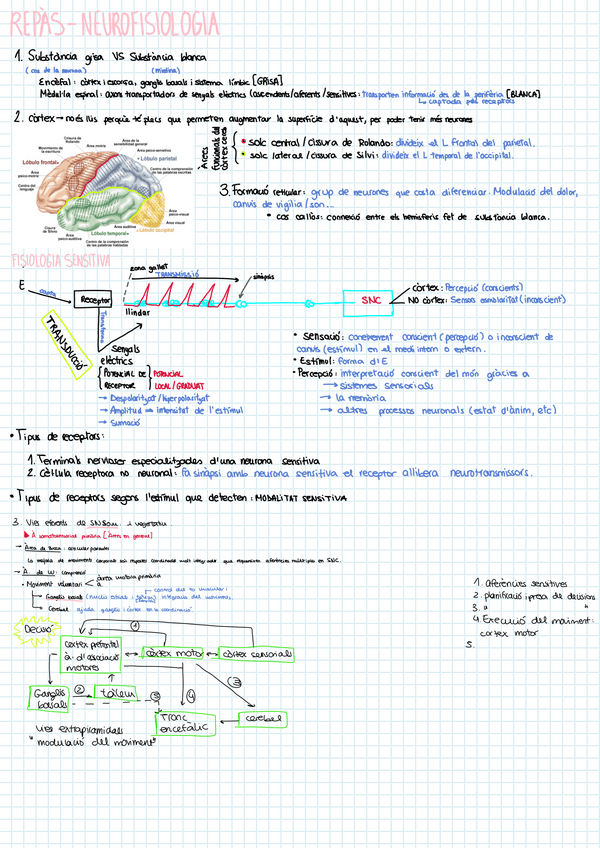 REPÀS - NEUROFISIOLOGIA
1. Substància grisa VS Substància blanca
(cos de la neurona) (mielina)
Encèfal: còrtex i escorça, ganglis basals i sistema límbic [GRISA]
Mèdul·la espinal: axons transportadors de senyals elèctrics (ascendents/aferents/sensitives: transporten informació des de la perifèria [BLANCA]
↳ captada pel receptors
2. còrtex → no és llis perquè té plecs que permeten augmentar la superfície d'aquest, per poder tenir més neurones
Àrees funcionals del còrtex cereb
• solc central / cisura de Rolando: divideix el L frontal del parietal.
• solc lateral / cisura de Silvi: divideix el L temporal de l'occipital.
Cisura de Rolando
Área motriz
Área de la sensibilidad general
Movimiento de la escritura
Área psico-sensitiva
Lóbulo frontal
Lóbulo parietal
Área psico-motriz
Centro de la comprensión de las palabras escritas
Centro del lenguaje
Área psico-visual
Área visual
Cisura de Silvio
Lóbulo occipital
Área psico-auditiva
Área auditiva
Lóbulo temporal
Centro de la comprensión de las palabras habladas
3. Formació reticular: grup de neurones que costa diferenciar. Modulació del dolor,
canvis de vigília / son...
• cos callós: connexió entre els hemisferis fet de substància blanca.
FISIOLOGIA SENSITIVA
zona gallet
TRANSMISSIÓ
sinapsis
E
capta
Receptor
llindar
SNC
còrtex: Percepció (conscients)
NO còrtex: Sensos esmolaritat (inconscient)
Transforma
TRANSDUCCIÓ
Senyals
elèctrics
POTENCIAL DE RECEPTOR
POTENCIAL LOCAL/GRADUAT
→ Despolaritzat / hiperpolaritzat
→ Amplitud → intensitat de l'estímul
→ Sumació
• Sensació: coneixement conscient (percepció) o inconscient de
canvis (estímul) en el medi intern o extern.
• Estímul: forma d'E
• Percepció: interpretació conscient del món gràcies a
→ sistemes sensorials
→ la memòria
→ altres processos neuronals (estat d'ànim, etc)
• Tipus de receptors:
1. Terminals nervioses especialitzades d'una neurona sensitiva
2. Cèl·lula receptora no neuronal: fa sinapsi amb neurona sensitiva el receptor allibera neurotransmissors.
• Tipus de receptors segons l'estímul que detecten: MODALITAT SENSITIVA
3. Vies eferents de SNSom. i vegetatiu.
À somatosensorial primària [Àrees en general]
→ Àrea de Broca: articular paraules
→ À. de W: comprensió
• Moviment voluntari
àrea motora primària
→ Cerebel ajuda ganglis i còrtex en la coordinació.
1. aferències sensitives
2. planificació i presa de decisions
3. " "
4. Execució del moviment:
còrtex motor
5.
Decisió
1
còrtex prefrontal
à. d'associació
motores
còrtex motor
còrtex sensorials
Ganglis
basals
2
tàlem
3
4
3
Tronc
encefàlic
cerebel
vies extrapiramidals
"modulació del moviment"